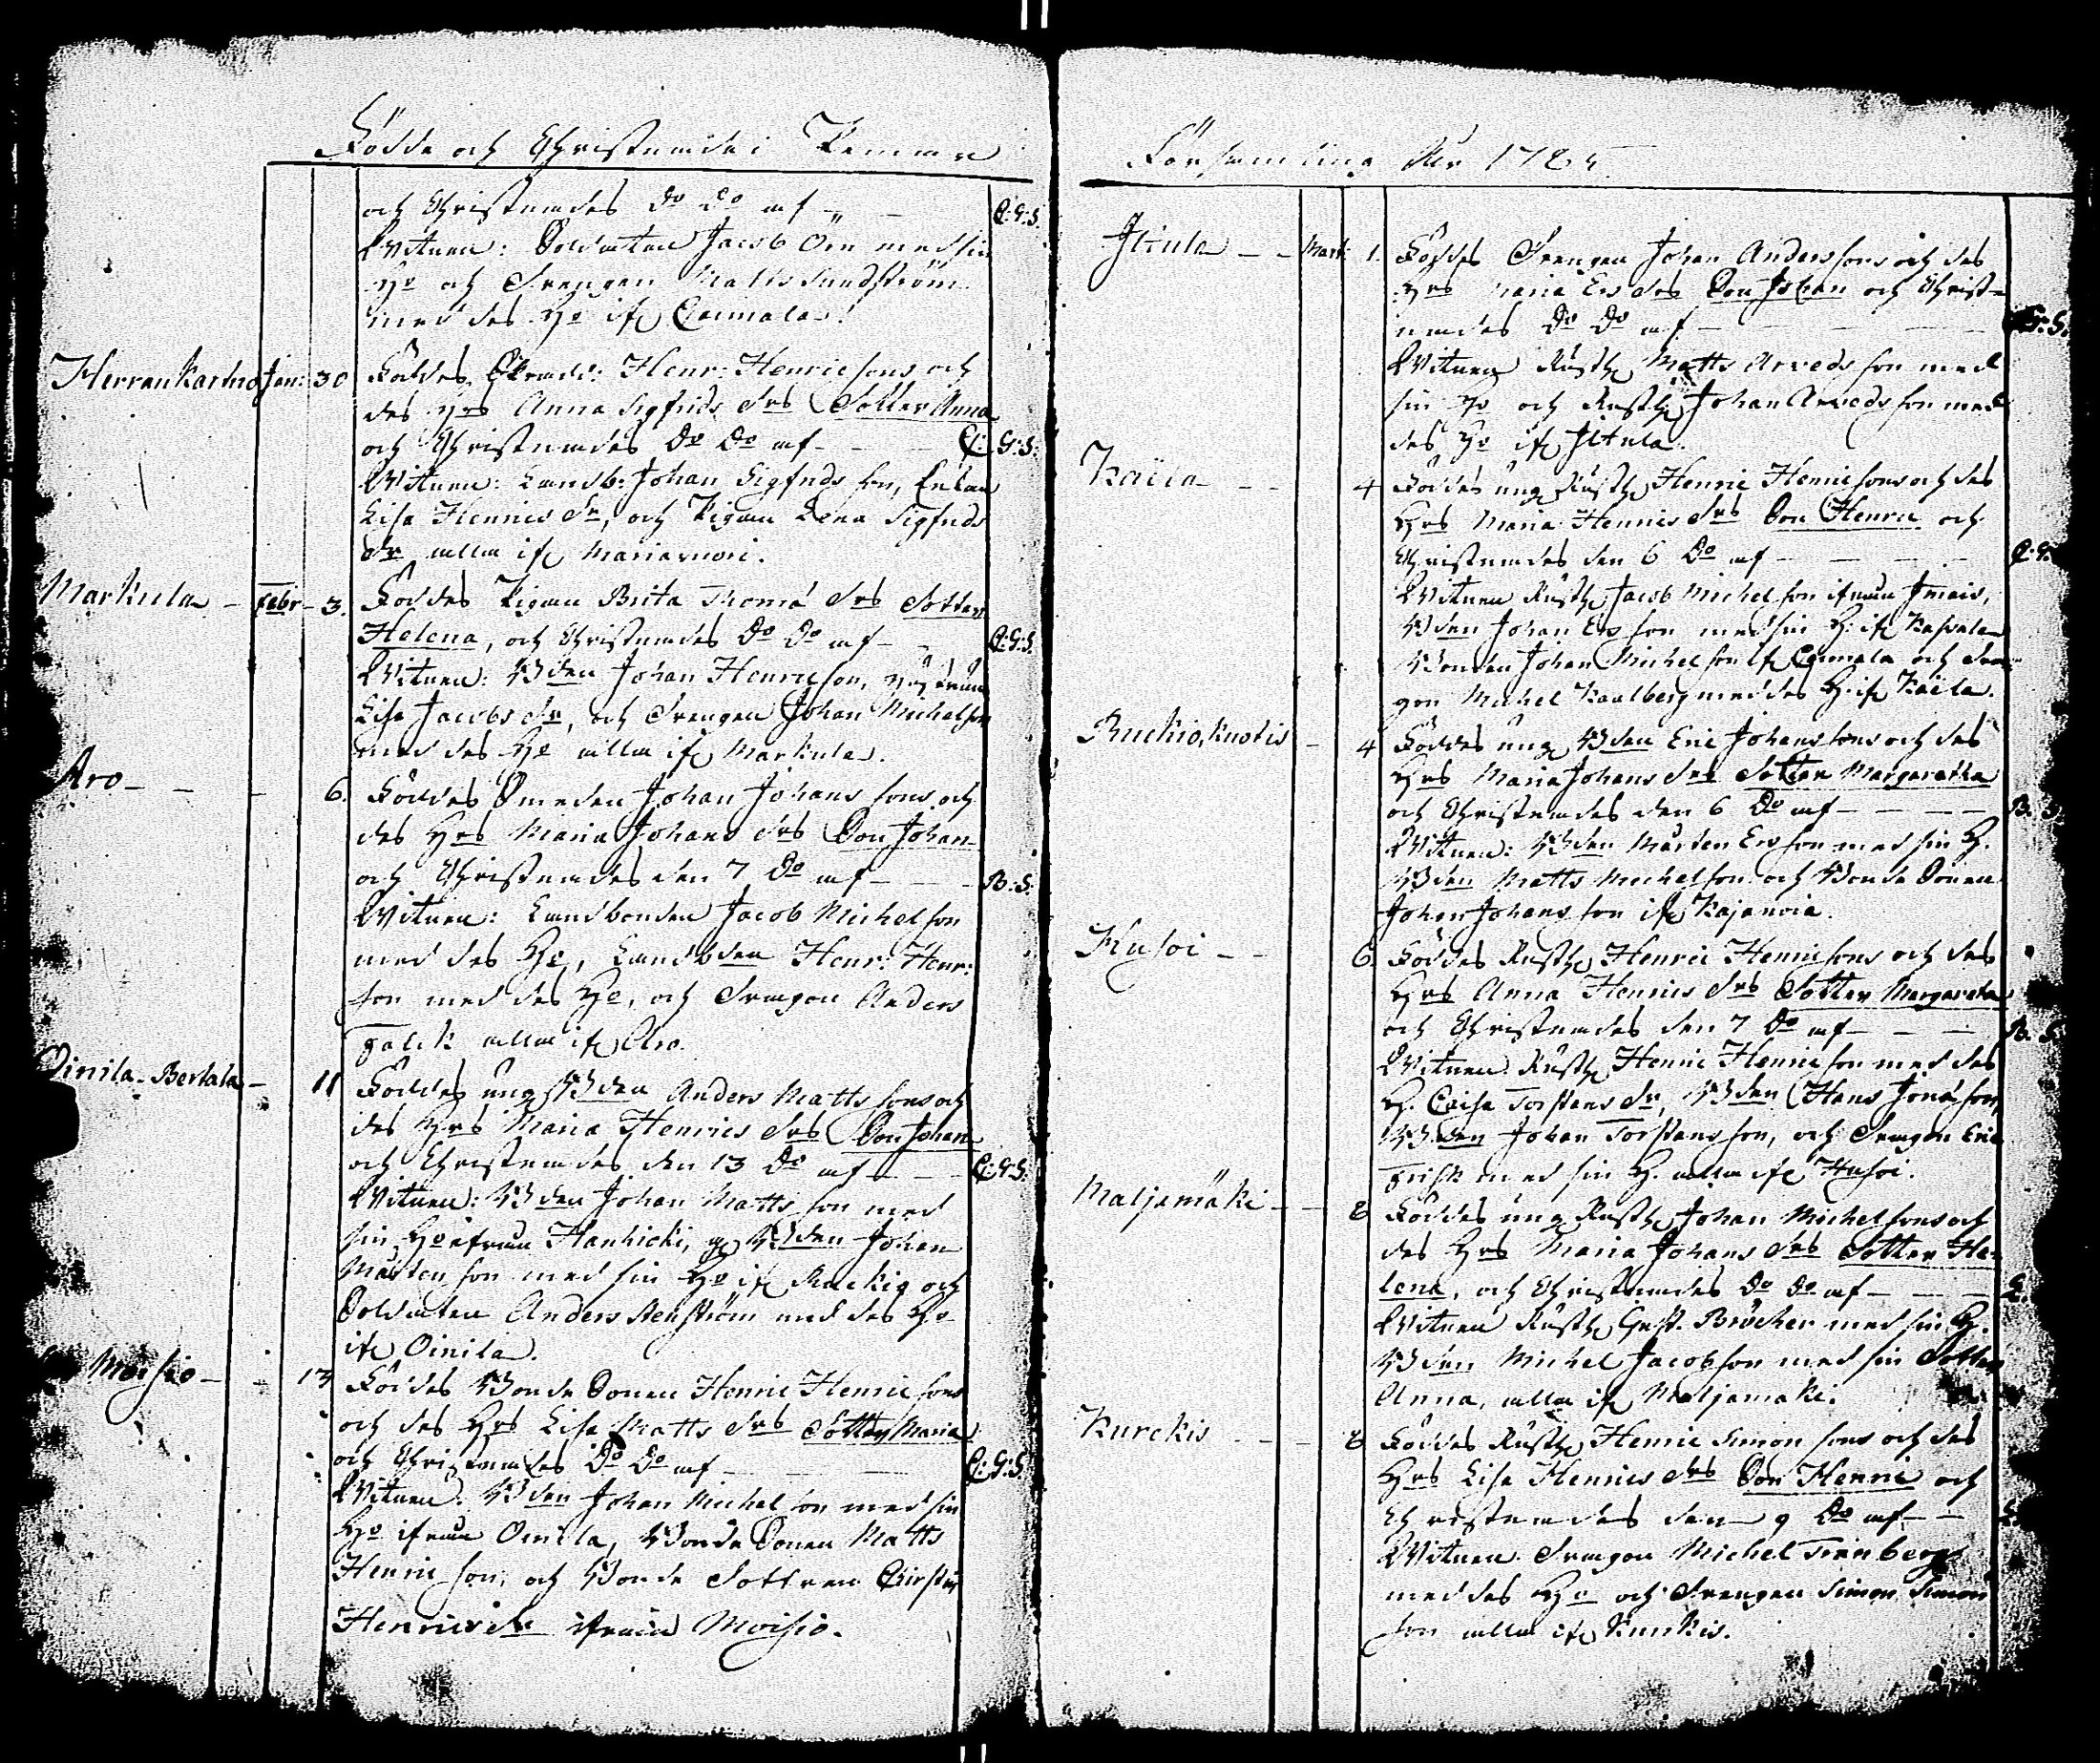 Födde och Christnade i Kemmre
och Christnades do do af — C: G: S:
Witnen: Soldaten Jacob Öön med sin
Ho och Drengen Matts Sundström
med des Ho if Carmala.
Herrankartno Jan: 30 Föddes Skredd: Henr: Henricsons och
des Hrs Anna Sigfrids Drs Dotter Anna
och Christnades do do af — C: G: S:
Witnen: Landb: Johan Sigfrids son, Enkan
Lisa Henrics Dr, och Pigan Lena Sigfrids
Dr alla if Mariaruori.
Markula — Febr — 3. Föddes Pigan Brita Thomæ Drs Dotter
Helena, och Christnades do do af — C: G: S:
Witnen: Bden Johan Henricson, Hustrun
Lisa Jacobs Dr, och Drengen Johan Michelson
med des Ho alla if Markula.
Aro — — — 6. Föddes Smeden Johan Johans sons och
des Hrs Maria Johans Drs Son Johan
och Christnades den 7 do af — — B: S:
Witnen: Landbonden Jacob Michelson
med des Ho, Landbden Henr: Henr:
son med des Ho, och Dragon Anders
Falck alla if Aro.
Oinila Bertala — 11 Föddes ung Bden Anders Matts sons och
des Hrs Maria Henrics Drs Son Johan
och Christnades den 13 do af — — C: G: S:
Witnen: Bden Johan Matts son med
sin Ho ifrån Hanhicki, Bden Johan
Mårtenson med sin Ho if Ruckio och
Soldaten Anders Stenström med des Ho
if Oinila.
Moisio — — 13 Föddes Bonde Sonen Henric Henricsons
och des Hrs Lisa Matts Drs Dotter Maria
och Christnades do do af — — C: G: S:
Witnen: Bden Johan Michelson med sin
Ho ifrån Oinila, Bonde Sonen Matts
Henricson, och Bonde Dottren Chirstin
Henrics Dr ifrån Moisio.
Församling Åhr 1785
Iltula — — Mart: 1. Föddes Drengen Johan Anderssons och des
Hrs Maria Ers Drs Son Johan och Christ=
nades do do af — G: S.
Witnen Rusth Matts Arvedsson med
sin Ho och Rusth Johan Arvedsson med
des Ho if Iltula.
Kaila — — 4 Föddes ung Rusth Henric Henricsons och des
Hrs Maria Henrics Drs Son Henric och
Christnades den 6 do af — C: G.
Witnen Rusth Jacob Michelson ifrån
Bden Johan Ersson med sin H: if
Bonden Johan Michelson if Carmala och Dra-
gon Michel Kaalberg med des H: if Kaila.
Ruckio, Kustis — 4 Föddes ung Bden Eric Johanssons och des
Hrs Maria Johans Drs Dotter Margaretha
och Christnades den 6 do af — B: S.
Witnen: Bden Mårten Ersson med sin H.
Bden Matts Michelson och Bonde Sonen
Johan Johansson if Kajanoia.
Husoi — — 6. Föddes Rusth Henric Henricsons och des
Hrs Anna Henrics Drs Dotter Margareta
och Christnades den 7 do af — — B: S.
Witnen Rusth Henric Henricson med des
H. Caisa Torstens Dr, Bden Hans Jonæson,
Bden Johan Torstensson, och Dragon Eric
Frisk med sin H. alla if Husoi.
Maljamäki — — 8 Föddes ung Rusth Johan Michelsons och
des Hrs Maria Johans Drs Dotter He=
lena, och Christnades do do af — —
Witnen Rusth Gust. Bröcker med sin H.
Bden Michel Jacobson med sin Dotter
Anna, alla if Maljamaki.
Kurckis — — 8 Föddes Rusth Henric Simonsons och des
Hrs Lisa Henrics Drs Son Henric och
Christnades den 9 do af —
Witnen Dragon Michel Tranberg
med des Ho och Drengen Simon Simon
son alla if Kurkis.